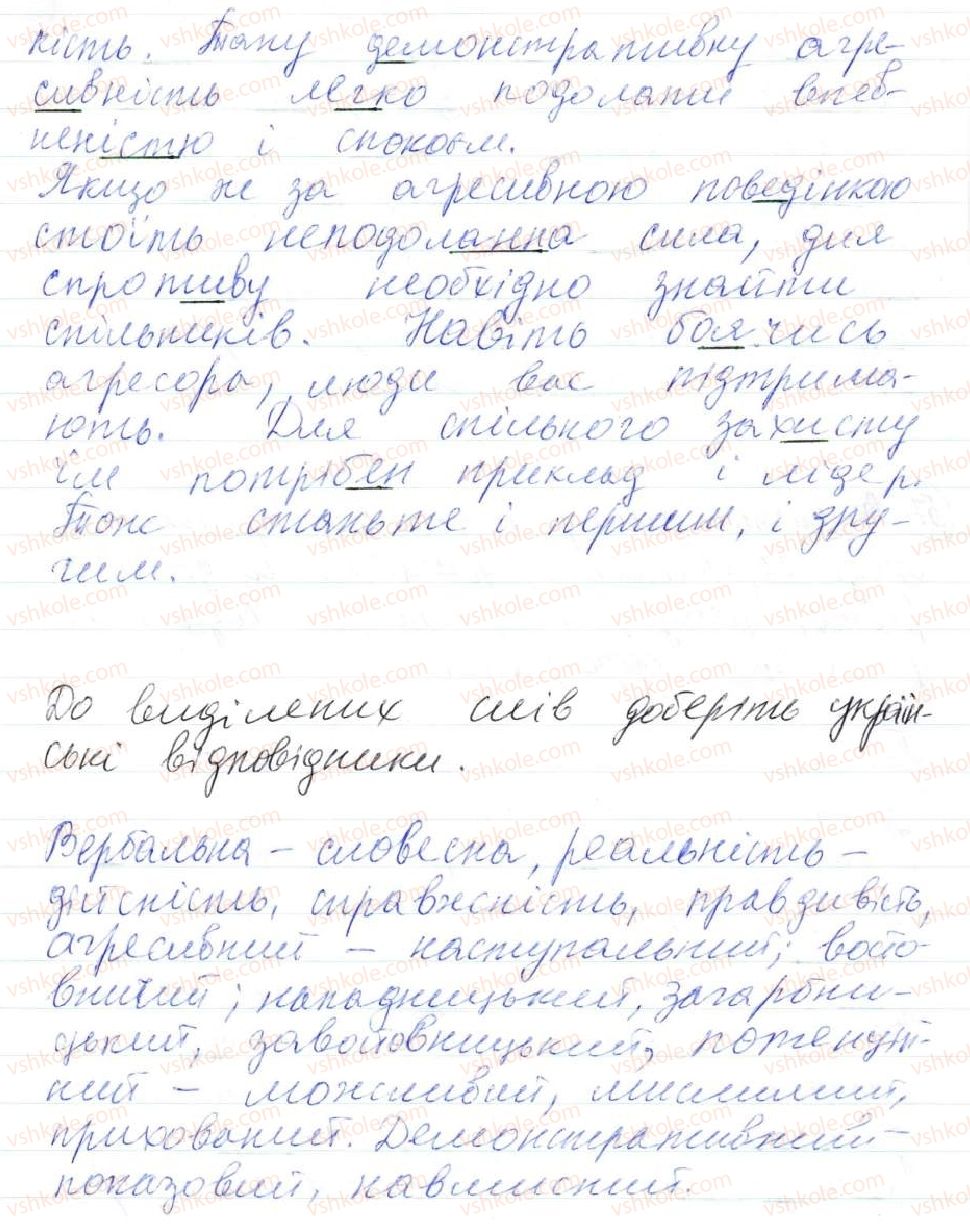 ність. Таку демонстративну агре-
сивність легко подолати впев-
неністю і спокоєм.
Якщо ж за агресивною поведінкою
стоїть неподоланна сила, для
спротиву необхідно знайти
спільників. Навіть боячись
агресора, люди вас підтрима-
ють. Для спільного захисту
їм потрібен приклад і лідер.
Тож станьте і першим, і дру-
гим.
До виділених слів доберіть україн-
ські відповідники.
Вербальна – словесна, реальність –
дійсність, справжність, правдивість,
агресивний – наступальний; войо-
вничий; нападницький, загарбни-
цький, завойовницький, потенцій-
ний – можливий, мислимий,
прихований. Демонстративний –
показовий, навмисний.